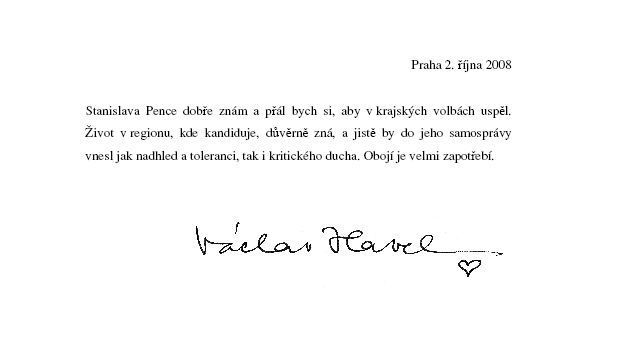 Praha 2. října 2008
Stanislava Pence dobře znám a přál bych si, aby v krajských volbách uspěl.
Život v regionu, kde kandiduje, důvěrně zná, a jistě by do jeho samosprávy
vnesl jak nadhled a toleranci, tak i kritického ducha. Obojí je velmi zapotřebí.
Václav Havel